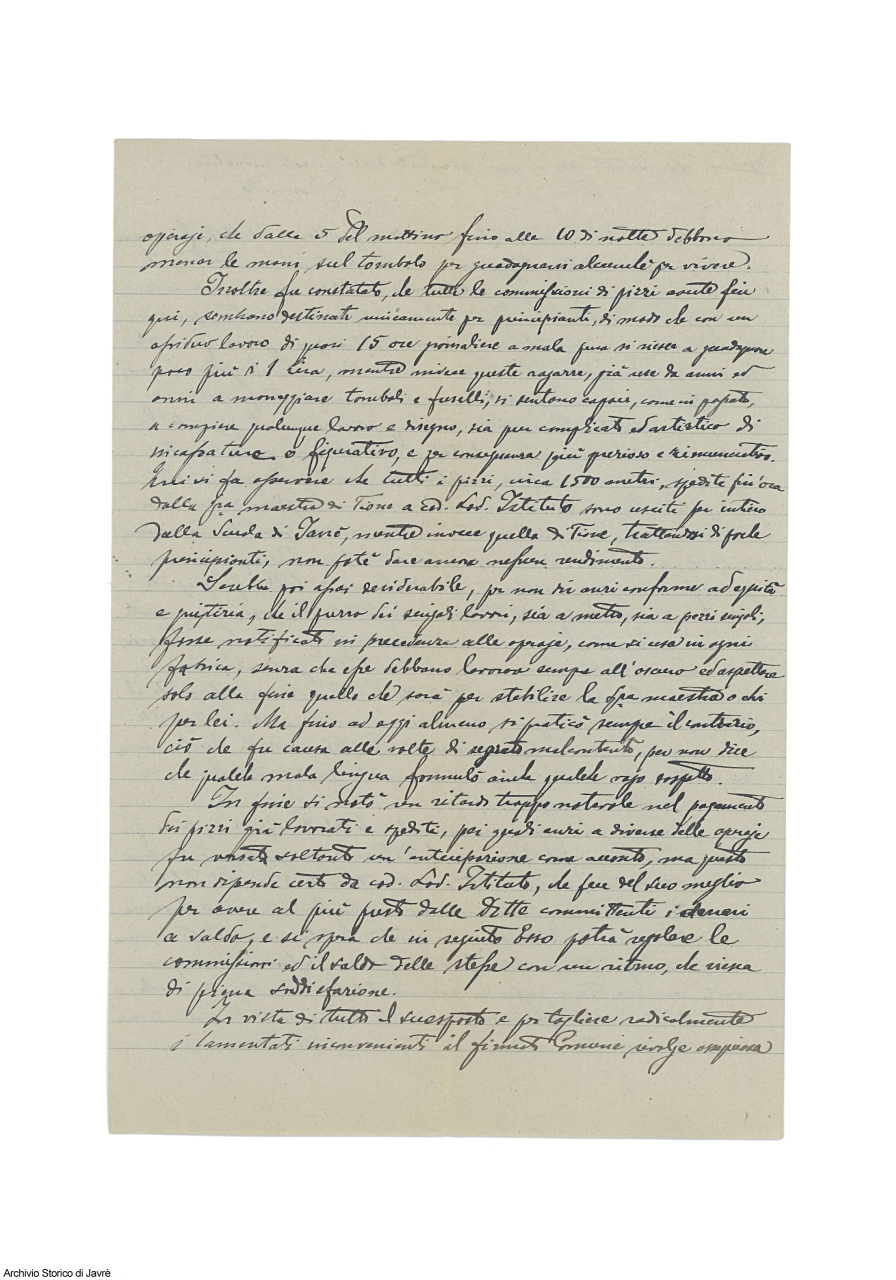 operaje, che dalle 5 del mattino fino alle 10 di notte debbono
menar le mani sul tombolo per guadagnarsi alcunchè per vivere.
Inoltre fu constatato, che tutte le commissioni di pizzi avute fin
qui, sembrano destinate unicamente per principianti, di modo che con un
assiduo lavoro di quasi 15 ore giornaliere a mala pena si riesce a guadagnare
poco più di 1 Lira, mentre invece queste ragazze, già use da anni ed
anni a maneggiare tomboli e fuselli, si sentono capaci, come in passato,
a compiere qualunque lavoro e disegno, sia pur complicato ed artistico di
o figurativo, e per conseguenza più prezioso e rimunerativo.
Quivi fa osservare che tutti i pizzi, circa 1500 metri, spediti fin'ora
dalla Sra maestra di Tione a cod. Lod. Istituto sono usciti per intiero
dalla Scuola di Javrè, mentre invece quella di Tione, trattandosi di poche
principianti, non potè dare ancora nessun rendimento.
Sarebbe poi assai desiderabile, per non dir anzi conforme ad equità
e giustizia, che il prezzo dei singoli lavori, sia a metro, sia a pezzi singoli,
fosse notificato in precedenza alle operaje, come si usa in ogni
fabrica, senza che esse debbano lavorar sempre all'oscuro ed aspettare
solo alla fine quello che sarà per stabilire la Sra maestra o chi
per lei. Ma fino ad oggi almeno si praticò sempre il contrario,
ciò che fu causa alle volte di segreto malcontento, per non dire
che qualche mala lingua formulò anche qualche vago sospetto.
In fine si notò un ritardo troppo notevole nel pagamento
dei pizzi già lavorati e spediti, pei quali anzi a diverse delle operaje
fu versata soltanto un'anticipazione come acconto, ma questo
non dipende certo da cod. Lod. Istituto, che fece del suo meglio
per avere al più presto dalle Ditte committenti i denari
a saldo, e si spera che in seguito Esso potrà regolare le
commissioni ed il saldo delle stesse con un ritmo, che riesca
di piena soddisfazione.
In vista di tutto il suesposto e per togliere radicalmente
i lamentati inconvenienti il firmato Comune rivolge
Archivio Storico di Javrè